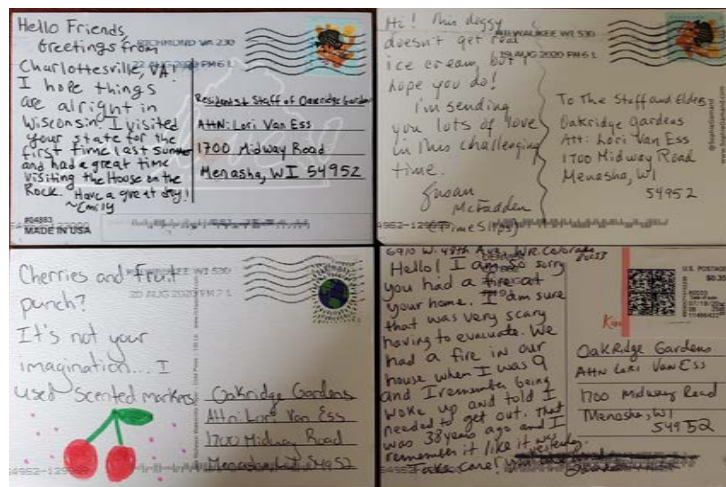 Hello Friends
Greetings from
Charlottesville, VA!
I hope things
are alright in
Wisconsin. I visited
your state for the
first time last summer
and had a great time
visiting the House on the
Rock. Have a great day!
~Emily
#04883
MADE IN USA
RICHMOND VA 230
22 AUG 2020 PM 6 L
Residents & Staff of Oakridge Gardens
Attn: Lori Van Ess
1700 Midway Road
Menasha, WI 54952
Hi! This doggy
doesn't get real
ice cream, but I
hope you do!
I'm sending
you lots of love
in this challenging
time.
Susan
McFadden
MILWAUKEE WI 530
19 AUG 2020 PM 6 L
To The Staff and Elders
Oakridge Gardens
Att: Lori Van Ess
1700 Midway Road
Menasha, WI
54952
Cherries and fruit
punch?
It's not your
imagination... I
used scented markers
MILWAUKEE WI 530
20 AUG 2020 PM 7 L
Oakridge Gardens
Attn: Lori Van Ess
1700 Midway Road
Menasha, WI 54952
6910 W. 48th Ave, W.R. Colorado
80033
Hello! I am so sorry
you had a fire at
your home. I am sure
that was very scary
having to evacuate. We
had a fire in our
house when I was 9
and I remember being
woke up and told I
needed to get out. That
was 38 years ago and I
remember it like it was
yesterday.
Take care!
U.S. POSTAGE
$0.35
OakRidge Gardens
Attn Lori Van ESS
1700 Midway Road
Menasha, WI
54952